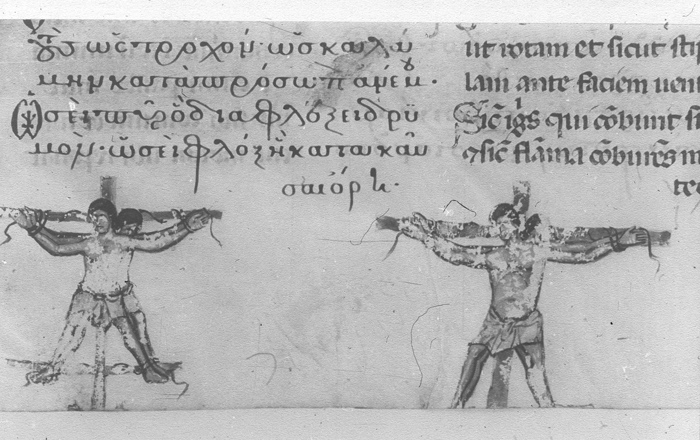 ὡς τροχόν· ὡς καλά
μην κατὰ πρόσωπ ἀνέμου·
σεὶ πῦρ ὃ διαφλόξει δρυ
μόν· ὡσεὶ φλὸξ ἣ κατακαῦ
σαι ὄρη·
ut rotam et sicut stip
lam ante faciem uent
Sic̄ igs qui cōbunt si
⁊ sic̄ flāma cōbures m
tes